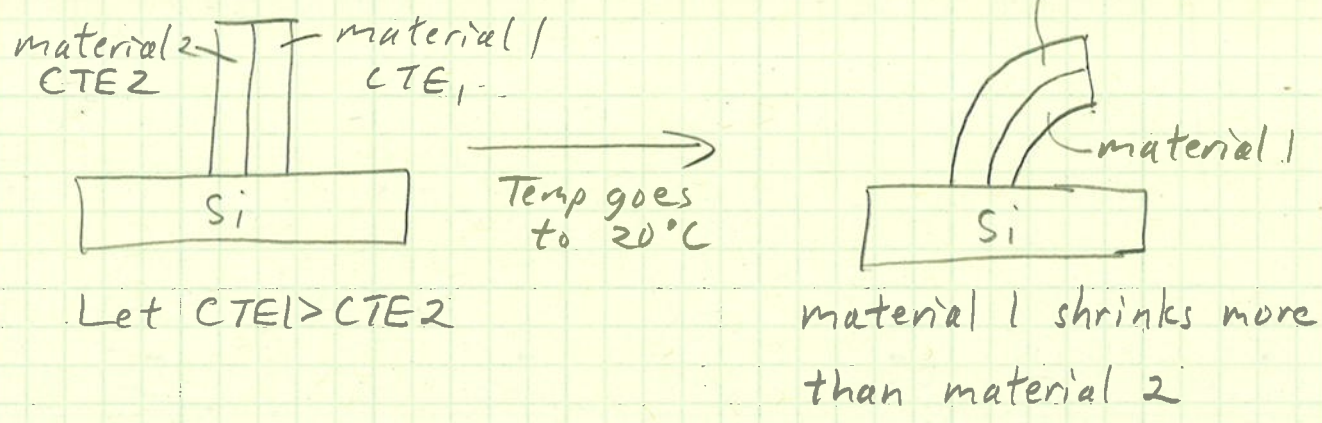 material 2
CTE2
material 1
CTE1
Si
Temp goes
to 20°C
material 1
Si
Let CTE1>CTE2
material 1 shrinks more
than material 2